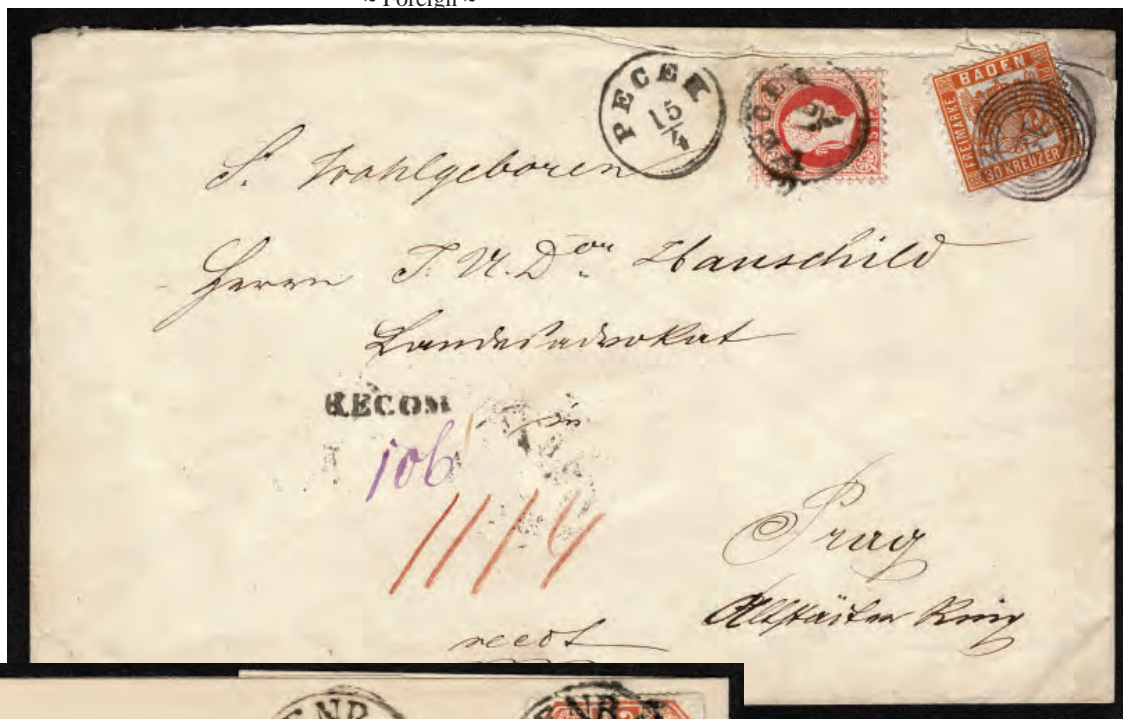 ~ Foreign ~
PECEK
15/4
PECEK
5 KR.
BADEN
FREIMARKE
30 KREUZER
S. Wohlgeboren
Herrn J. U. Dor Hanschild
Landesadvokat
RECOM
in
106
11/4
Prag
Altstädter Ring
recot